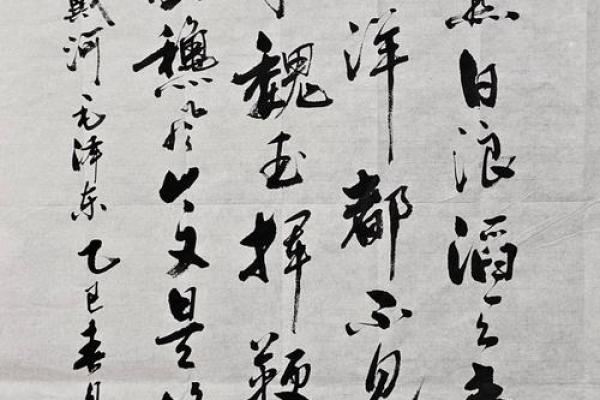 燕白浪滔天
洋都不见
魏武揮鞭
秋风今又是
戴河毛泽东乙巳春月